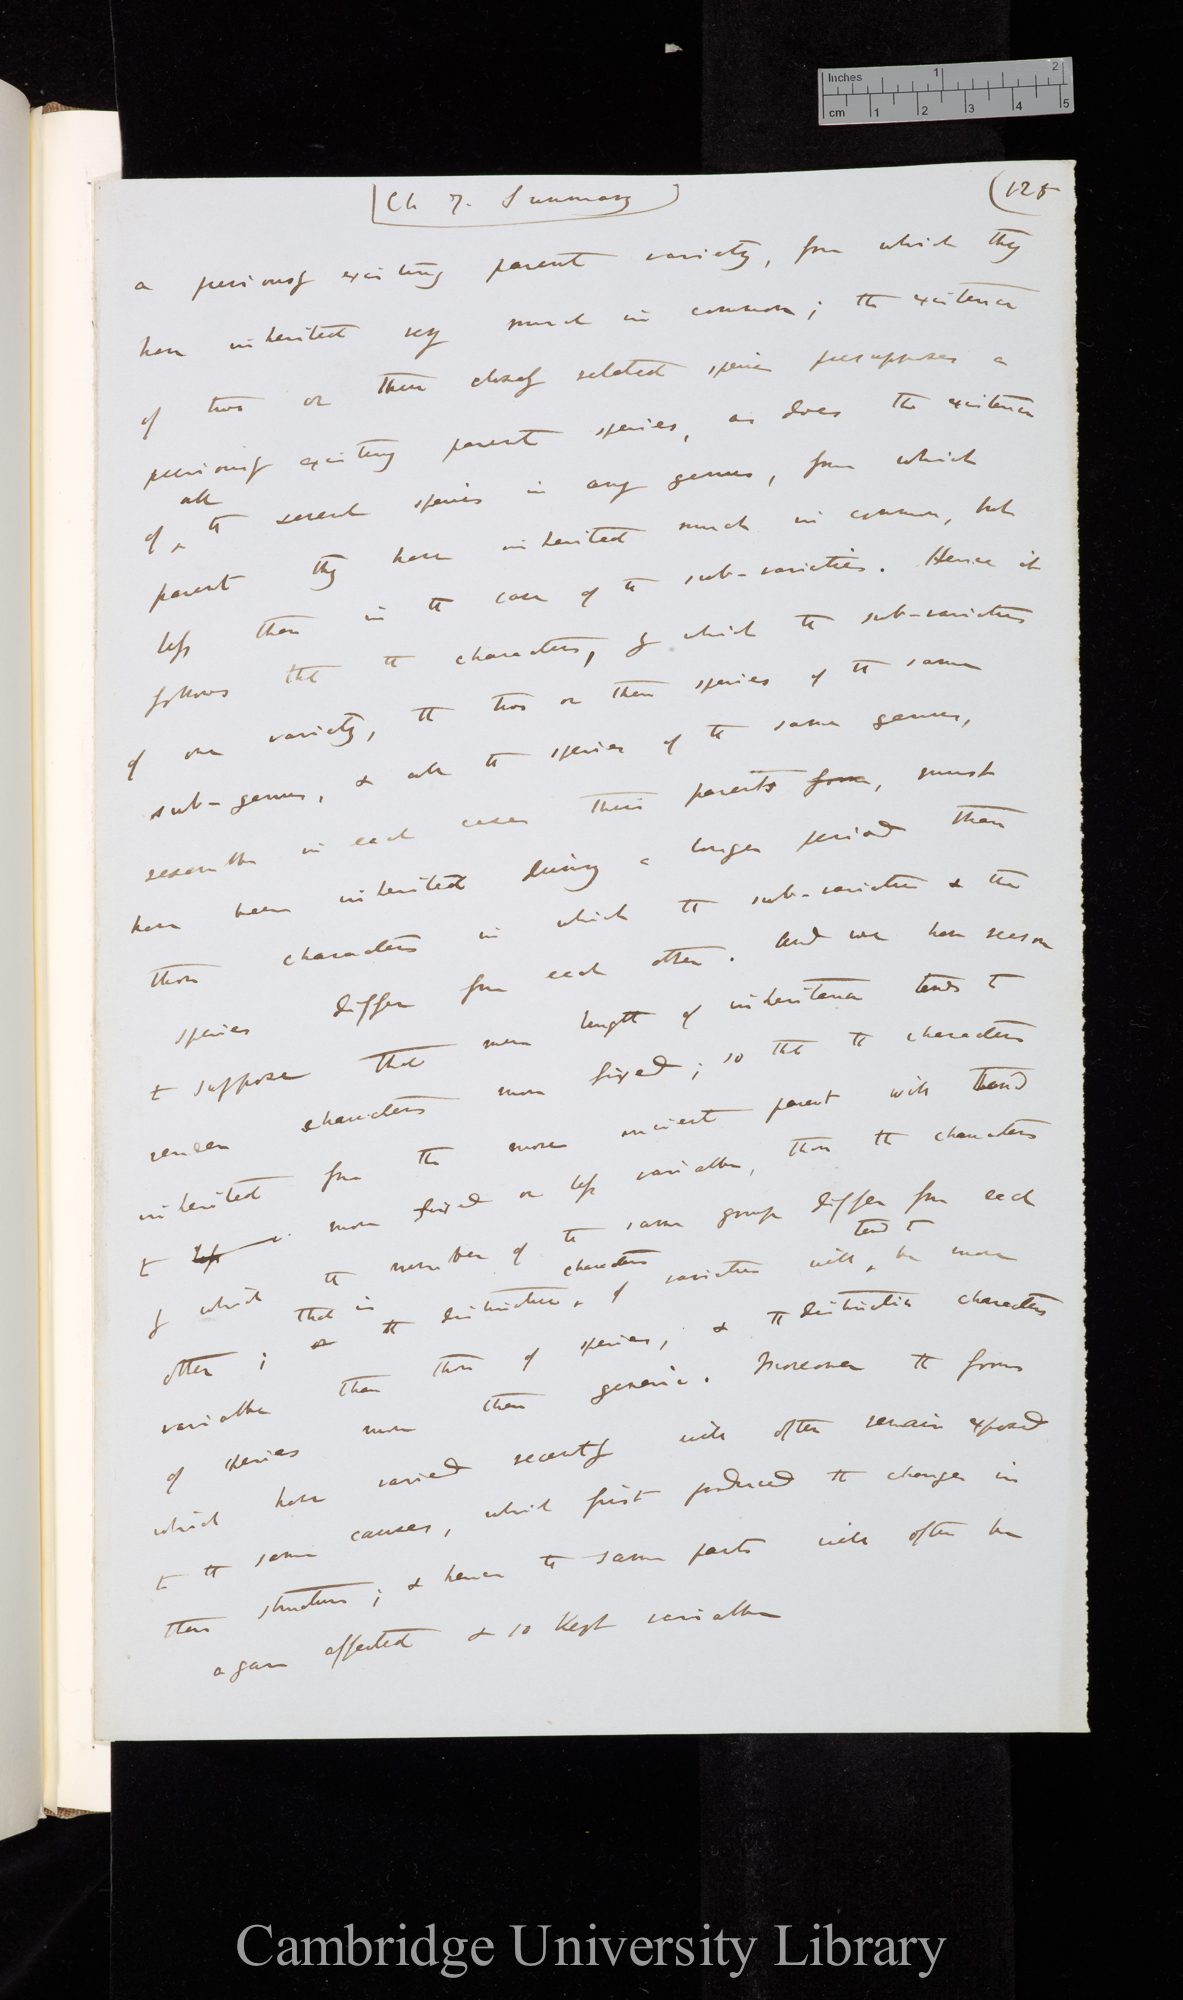 Inches 1 2
cm 1 2 3 4 5
Ch 7. Summary (125
a previously existing parent variety, from which they
have inherited very much in common; the existence
of two or three closely related species presupposes a
previously existing parent species, as does the existence
all
of the several species in any genus, from which
parent they have inherited much in common, but
less than in the case of the sub-varieties. Hence it
follows that the characters, by which the sub-varieties
of one variety, the two or three species of the same
sub-genus, & all the species of the same genus,
resemble in each case their parents form, must
have been inherited during a longer period than
those characters in which the sub-varieties & the
species differ from each other. And we have reason
to suppose that mere length of inheritance tends to
render characters more fixed; so that the characters
inherited from the more ancient parent will tend
to less more fixed or less variable, than the characters
by which the member of the same group differ from each
that is characters tend to
other; or the distinctive of varieties will be more
variable than those of species, & the distinctive characters
of species more than generic. Moreover the forms
which have varied recently will often remain exposed
to the same causes, which first produced the changes in
their structure; & hence the same parts will often be
again affected & so kept variable
Cambridge University Library